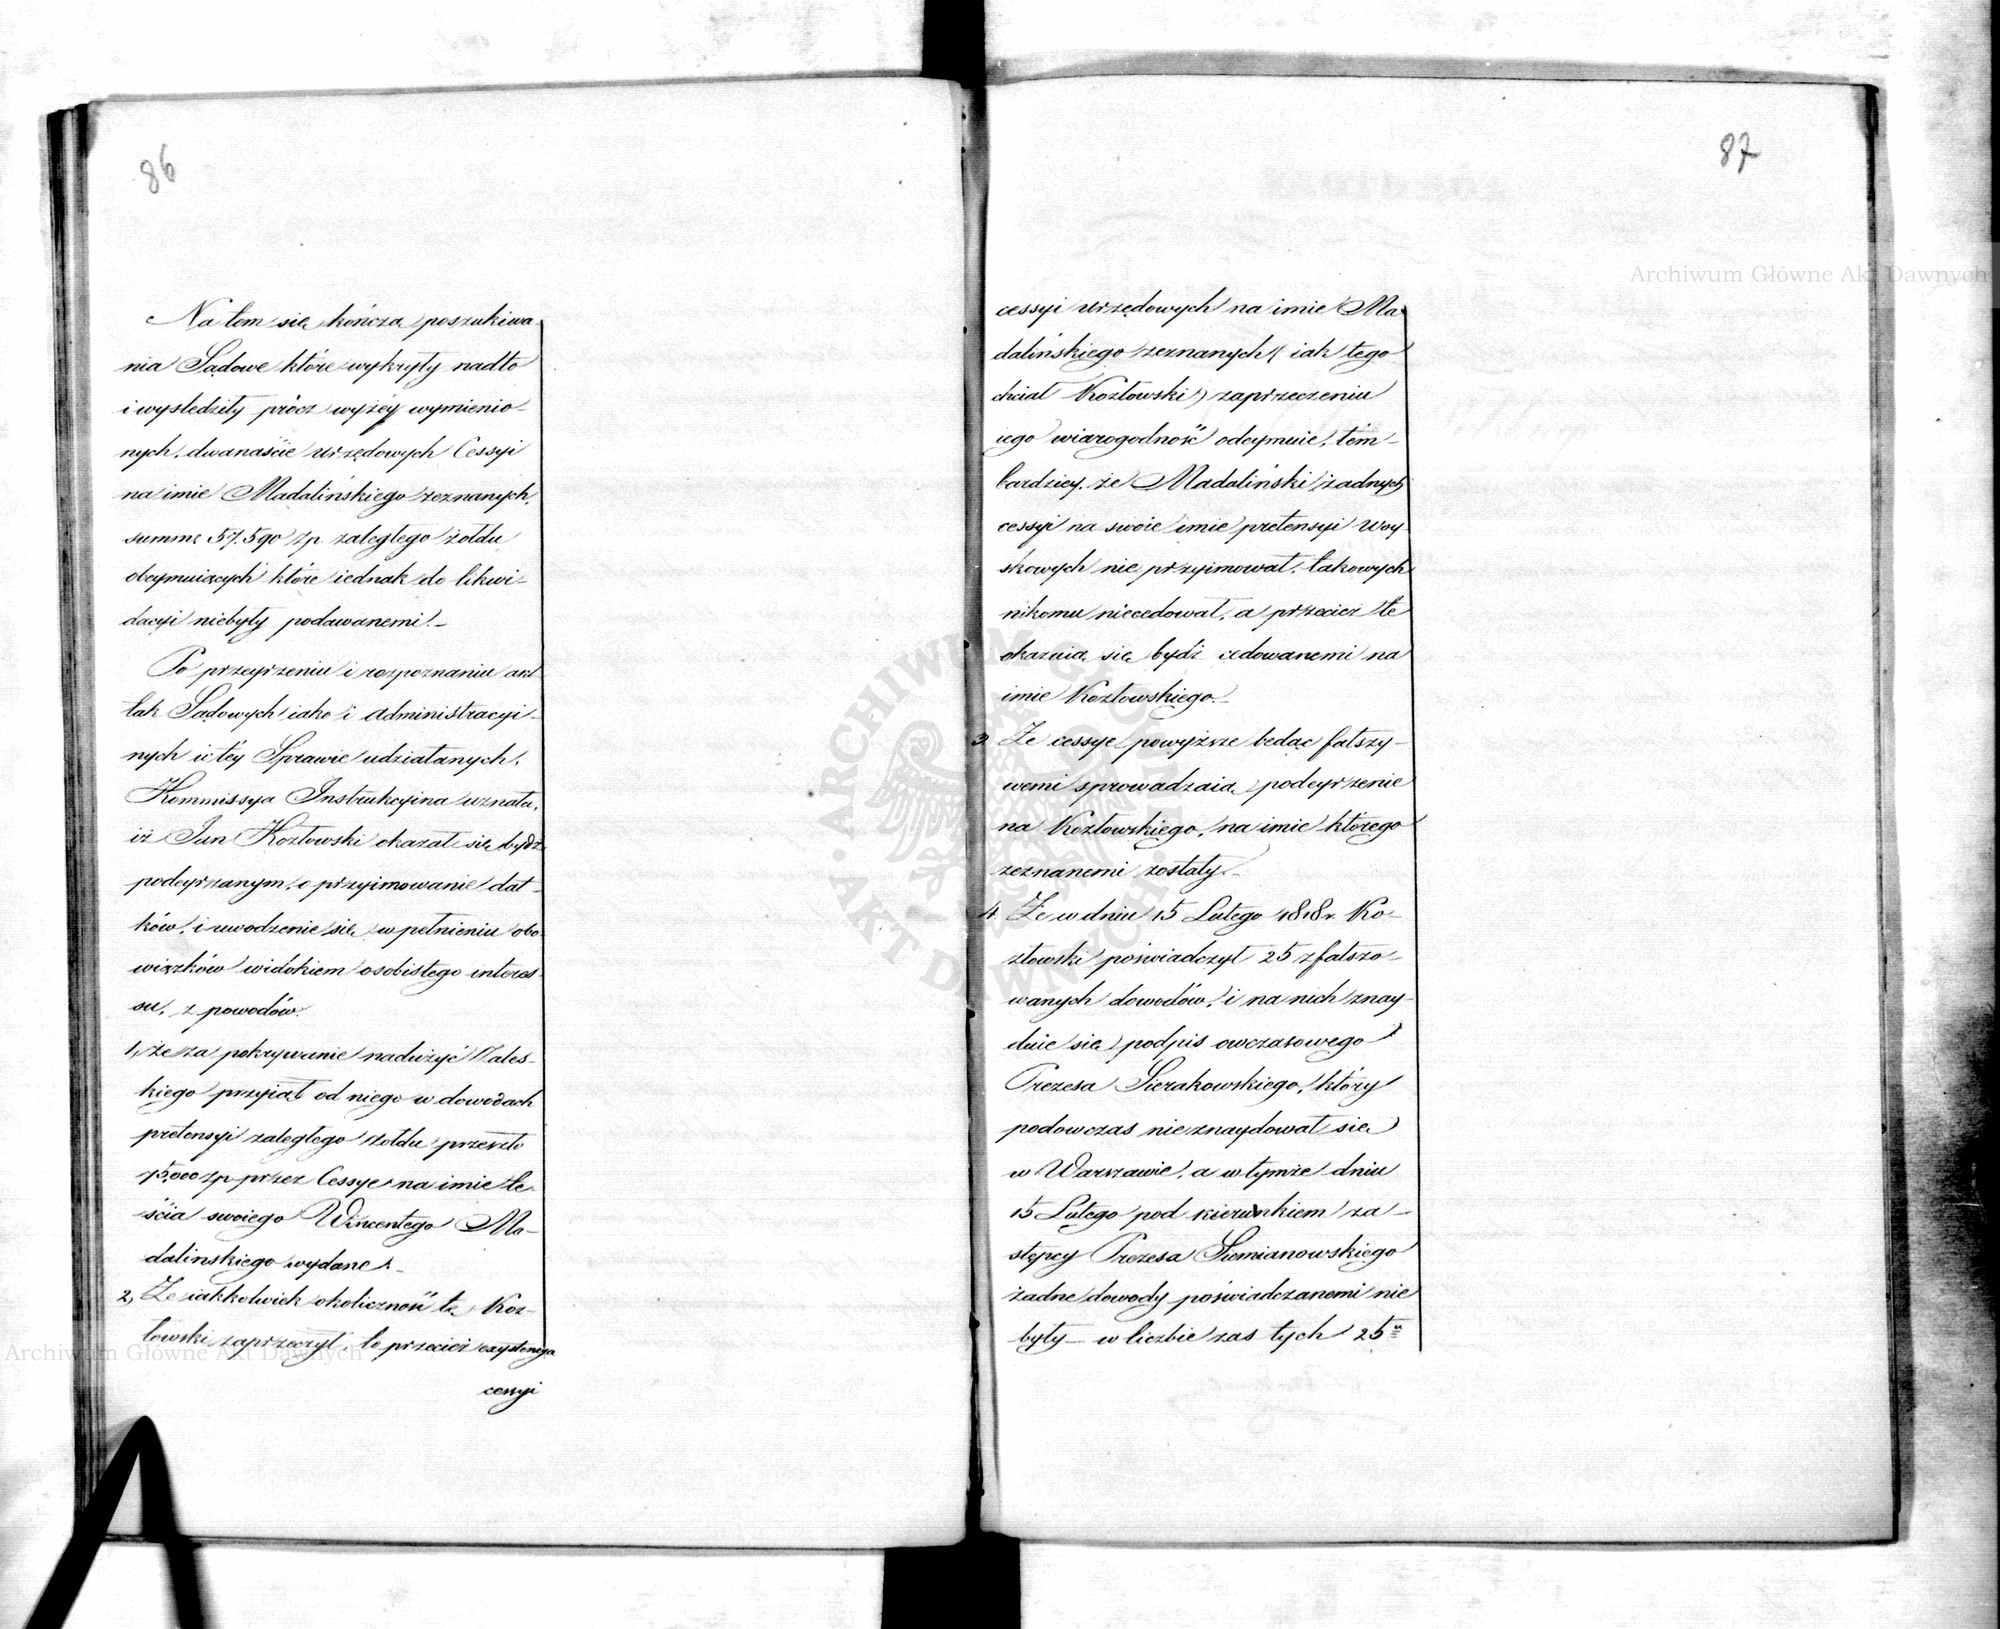 86
Na tem się kończą poszukiwa-
nia Sądowe które wykryły nadto
i wyśledziły prócz wyżéy wymienio-
nych, dwanaście urzędowych Cessyi
na imie Madalińskiego zeznanych,
summę 57.590 zp. zaległego żołdu
obeymuiących które iednak do likwi-
dacyi niebyły podawanemi.-
Po przeyrzeniu i rozpoznaniu akt
tak Sądowych iako i Administracyi-
nych w téy Sprawie udziałanych,
Kommissya Instrukcyina uznała,
iż Jan Kozłowski okazał się bydź
podeyrzanym, o przyimowanie dat-
ków, i uwodzenie się w pełnieniu obo-
wiązków widokiem osobistego interes-
su, z powodów.
1, że za pokrywanie nadużyć Zales-
kiego przyiął od niego w dowodach
pretensyi zaległego żołdu przeszło
75,000 zp. przez Cessye na imie te-
ścia swoiego Wincentego Ma-
dalinskiego wydane.-
2, Że iakkolwiek okoliczność tę Koz-
łowski zaprzeczył, to przecież exystencya
cessyi
87
cessyi urzędowych na imie Ma-
dalińskiego zeznanych (iak tego
chciał Kozłowski) zaprzeczeniu
iego wiarogodność odeymuie, tém-
bardziey, że Madaliński żadnych
cessyi na swoie imie pretensyi Woy-
skowych nie przyimował, takowych
nikomu niecedował, a przecież te
okazuią się bydź cedowanemi na
imie Kozłowskiego.-
3 Że cessye powyższe będąc fałszy-
wemi sprowadzaią podeyrzenie
na Kozłowskiego, na imie którego
zeznanemi zostały.-
4. Że w dniu 15 Lutego 1818 r. Ko-
złowski poświadczył 25 zfałszo-
wanych dowodów, i na nich znay-
duie się podpis owczasowego
Prezesa Sierakowskiego, który
podowczas nieznaydował się
w Warszawie, a w tymże dniu
15 Lutego pod kierunkiem za-
stępcy Prezesa Siemianowskiego
żadne dowody poświadczanemi nie
były- w liczbie zaś tych 25u
Archiwum Główne Akt Dawnych
Archiwum Główne Akt Dawnych